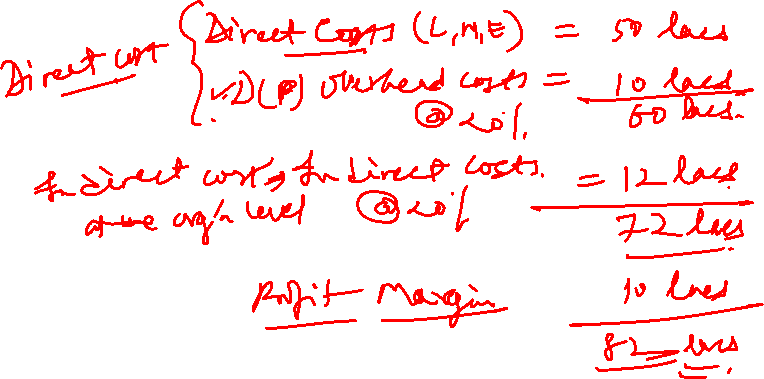 Direct cost
Direct Costs (L, M, E) = 50 lacs
(P) overhead costs = 10 lacs
@ 20%
60 lacs.
Indirect cost → Indirect costs. = 12 lacs
at the org'n level @ 20%
72 lacs
Profit Margin 10 lacs
82 lacs